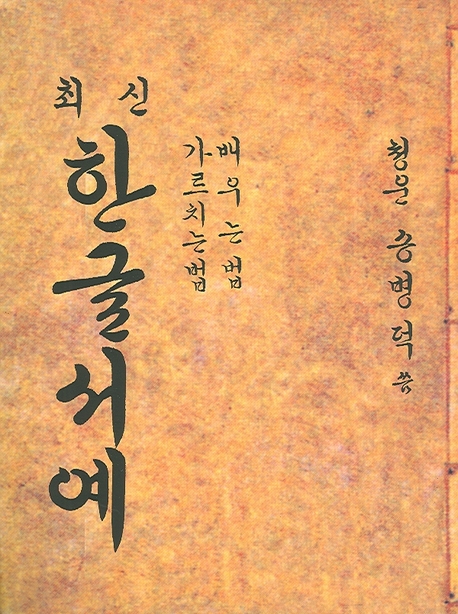 청운 송병덕 씀
배우는법
가르치는법
최신
한글서예